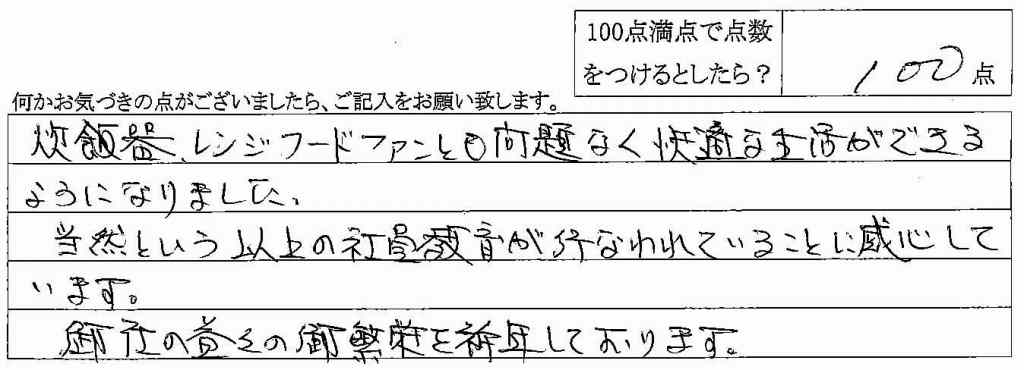 100点満点で点数
をつけるとしたら？
100点
何かお気づきの点がございましたら、ご記入をお願い致します。
炊飯器、レンジフードファンとも問題なく快適な生活ができる
ようになりました。
当然という以上の社員教育が行なわれていることに感心して
います。
御社の益々の御繁栄を祈年しております。